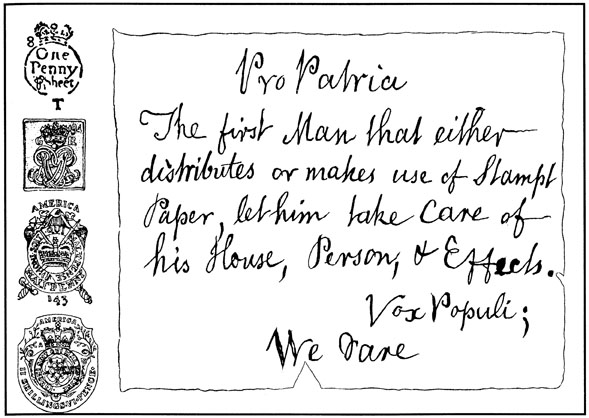 One
Penny
Sheet
T
AMERICA
143
AMERICA
II SHILLINGS VI PENCE
Pro Patria
The first Man that either
distributes or makes use of Stampt
Paper, let him take Care of
his House, Person, & Effects.
Vox Populi;
We dare